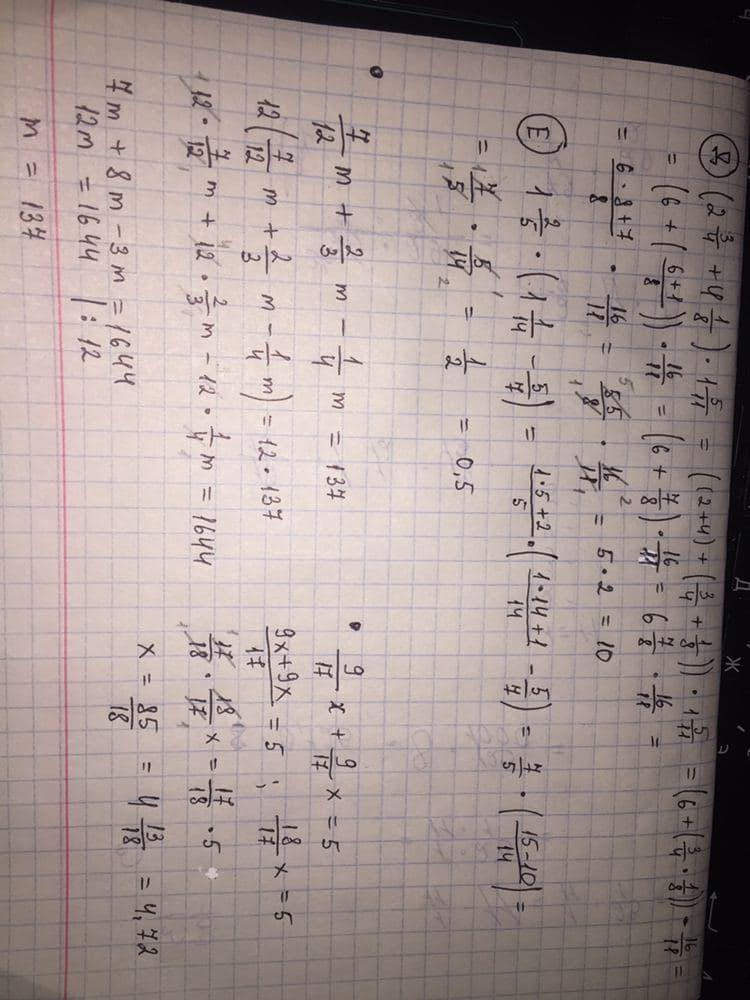 Д (2 3/4 + 4 1/8) · 1 5/11 = ((2+4) + (3/4 + 1/8)) · 1 5/11 = (6 + (3/4 · 1/8)) · 16/11 =
= (6 + (6+1/8)) · 16/11 = (6 + 7/8) · 16/11 = 6 7/8 · 16/11 =
= 6·8+7/8 · 16/11 = 55/8 · 16/11 = 5 · 2 = 10
Е 1 2/5 · (1 1/14 - 5/7) = 1·5+2/5 · (1·14+1/14 - 5/7) = 7/5 · (15-10/14) =
= 7/5 · 5/14 = 1/2 = 0,5
7/12 m + 2/3 m - 1/4 m = 137
12 (7/12 m + 2/3 m - 1/4 m) = 12 · 137
12 · 7/12 m + 12 · 2/3 m - 12 · 1/4 m = 1644
7m + 8m - 3m = 1644
12m = 1644 | : 12
m = 137
9/17 x + 9/17 x = 5
9x+9x/17 = 5 ; 18/17 x = 5
17/18 · 18/17 x = 17/18 · 5
x = 85/18 = 4 13/18 = 4,72